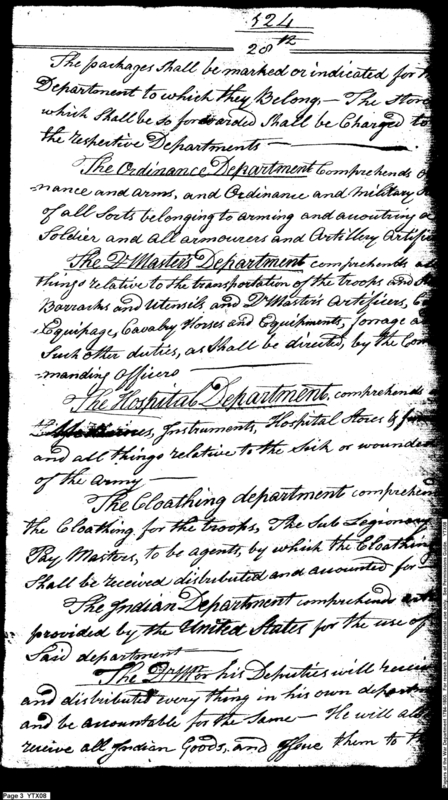 524
28th
The packages Shall be marked or indicated for
Department to which they Belong,— The Store
which Shall be so forwarded Shall be Charged to
the respective Departments —
The Ordinance Department Comprehends
nance and arms, and Ordinance and Military
of all Sorts belonging to arming and acoutring
Soldier and all armourers and Artillery Artific
The Qr Master's Department comprehends
things relative to the transportation of the troops and
Barracks and Utensils and Qr Master's Artificers,
Equipage, Cavalry Horses and Equipments, forrage
Such other duties, as Shall be directed, by the Com
manding Officers
The Hospital Department, comprehends
Instruments, Hospital Stores &
and all things relative to the Sick or wounded
of the army —
The Cloathing department comprehend
the Cloathing for the troops, The Sub Legionary
Pay Masters, to be agents, by which the Cloathing
Shall be received distributed and accounted for
The Indian Department comprehend
provided by the United States for the use of
Said department —
The or his Deputies will receive
and distribute every thing in his own depart
and be accountable for the Same — He will al
receive all Indian Goods, and them to
Page 3 YTX08